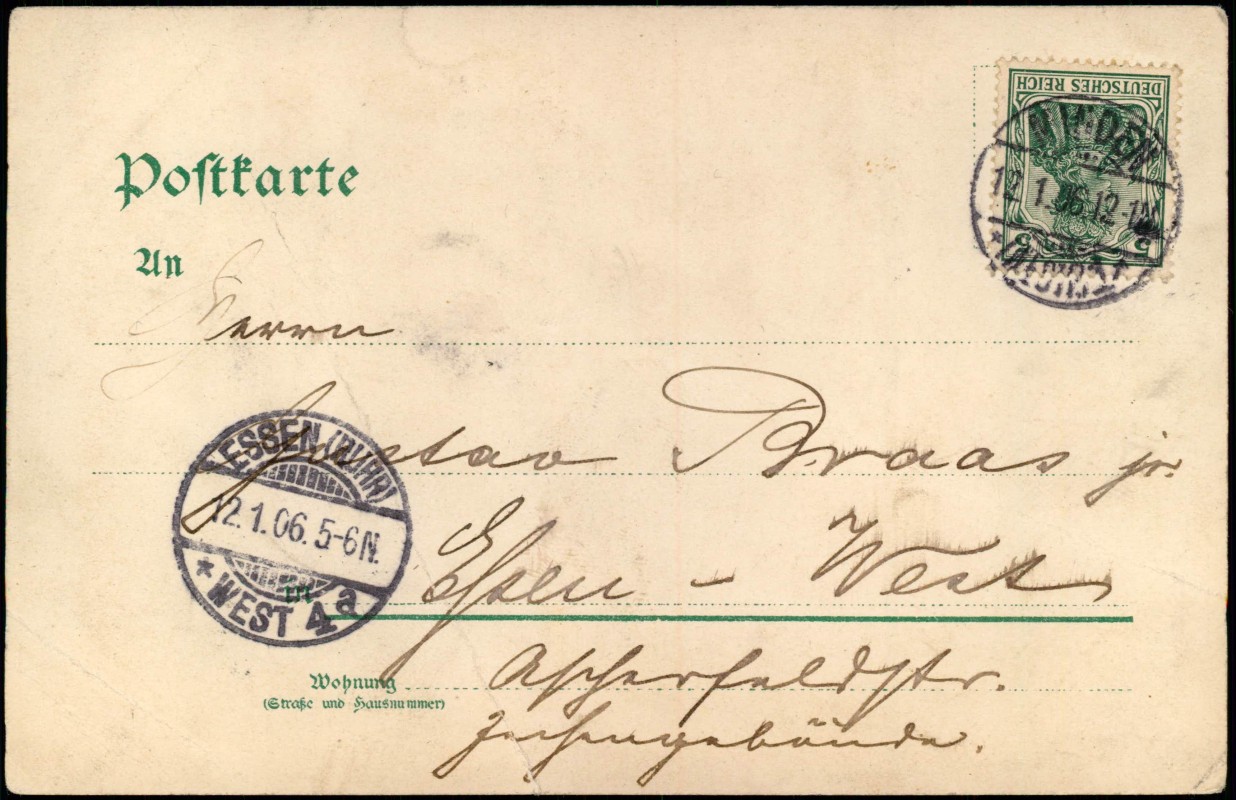 DEUTSCHES REICH
5 5
MINDEN
12.1.06.12-1N.
* (WESTF.)
Postkarte
An
Herrn
Gustav Braas jr.
ESSEN (RUHR)
12.1.06.5-6N.
* WEST 4a
in Essen - West
Wohnung Ascherfeldstr.
(Straße und Hausnummer)
Zechengebäude.